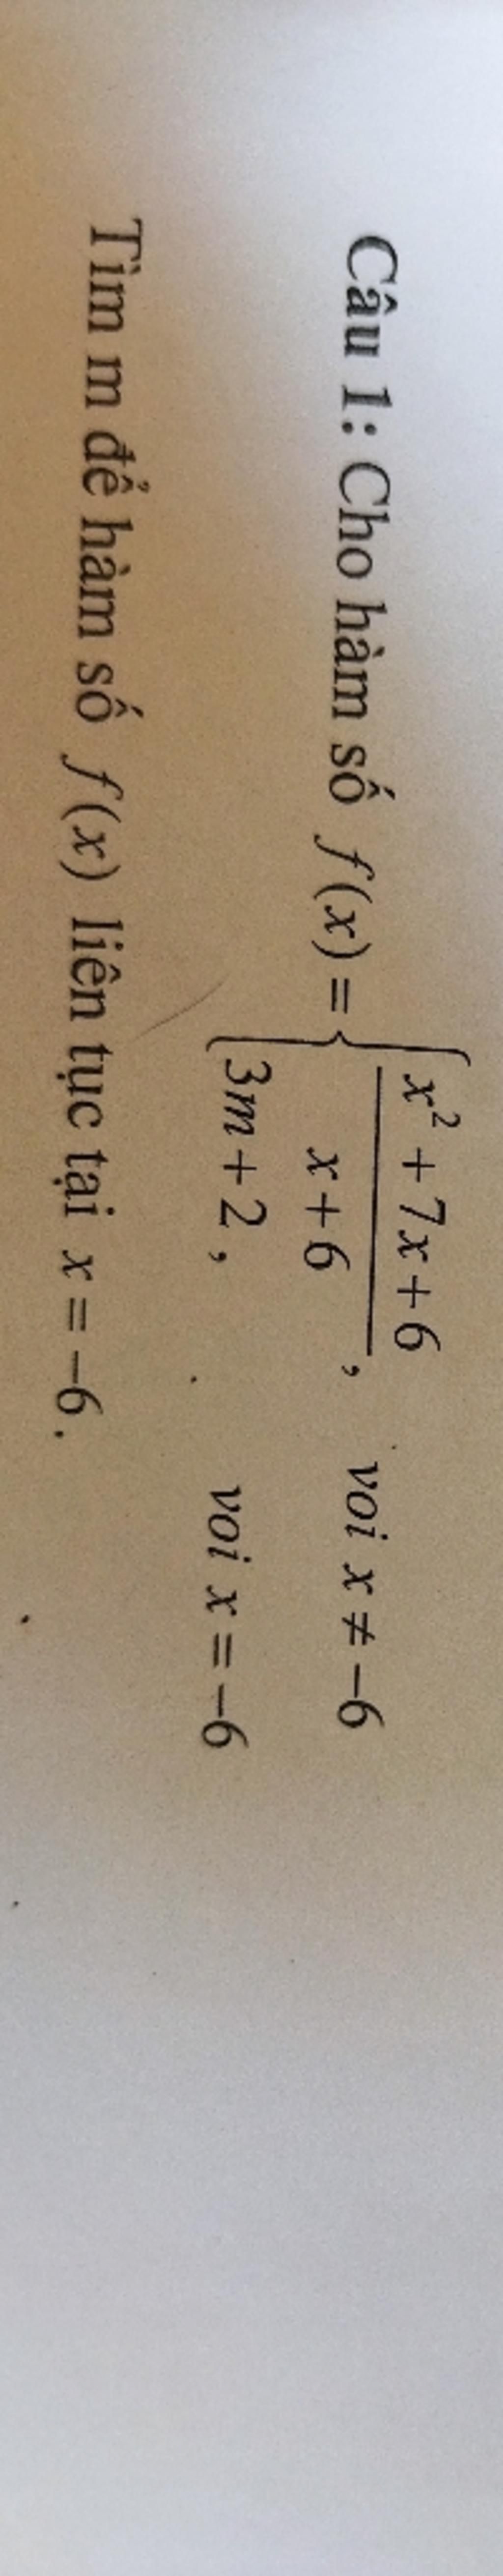 Câu 1: Cho hàm số f(x) = { (x² + 7x + 6)/(x + 6), voi x ≠ −6
3m + 2, voi x = −6
Tìm m để hàm số f(x) liên tục tại x = −6.